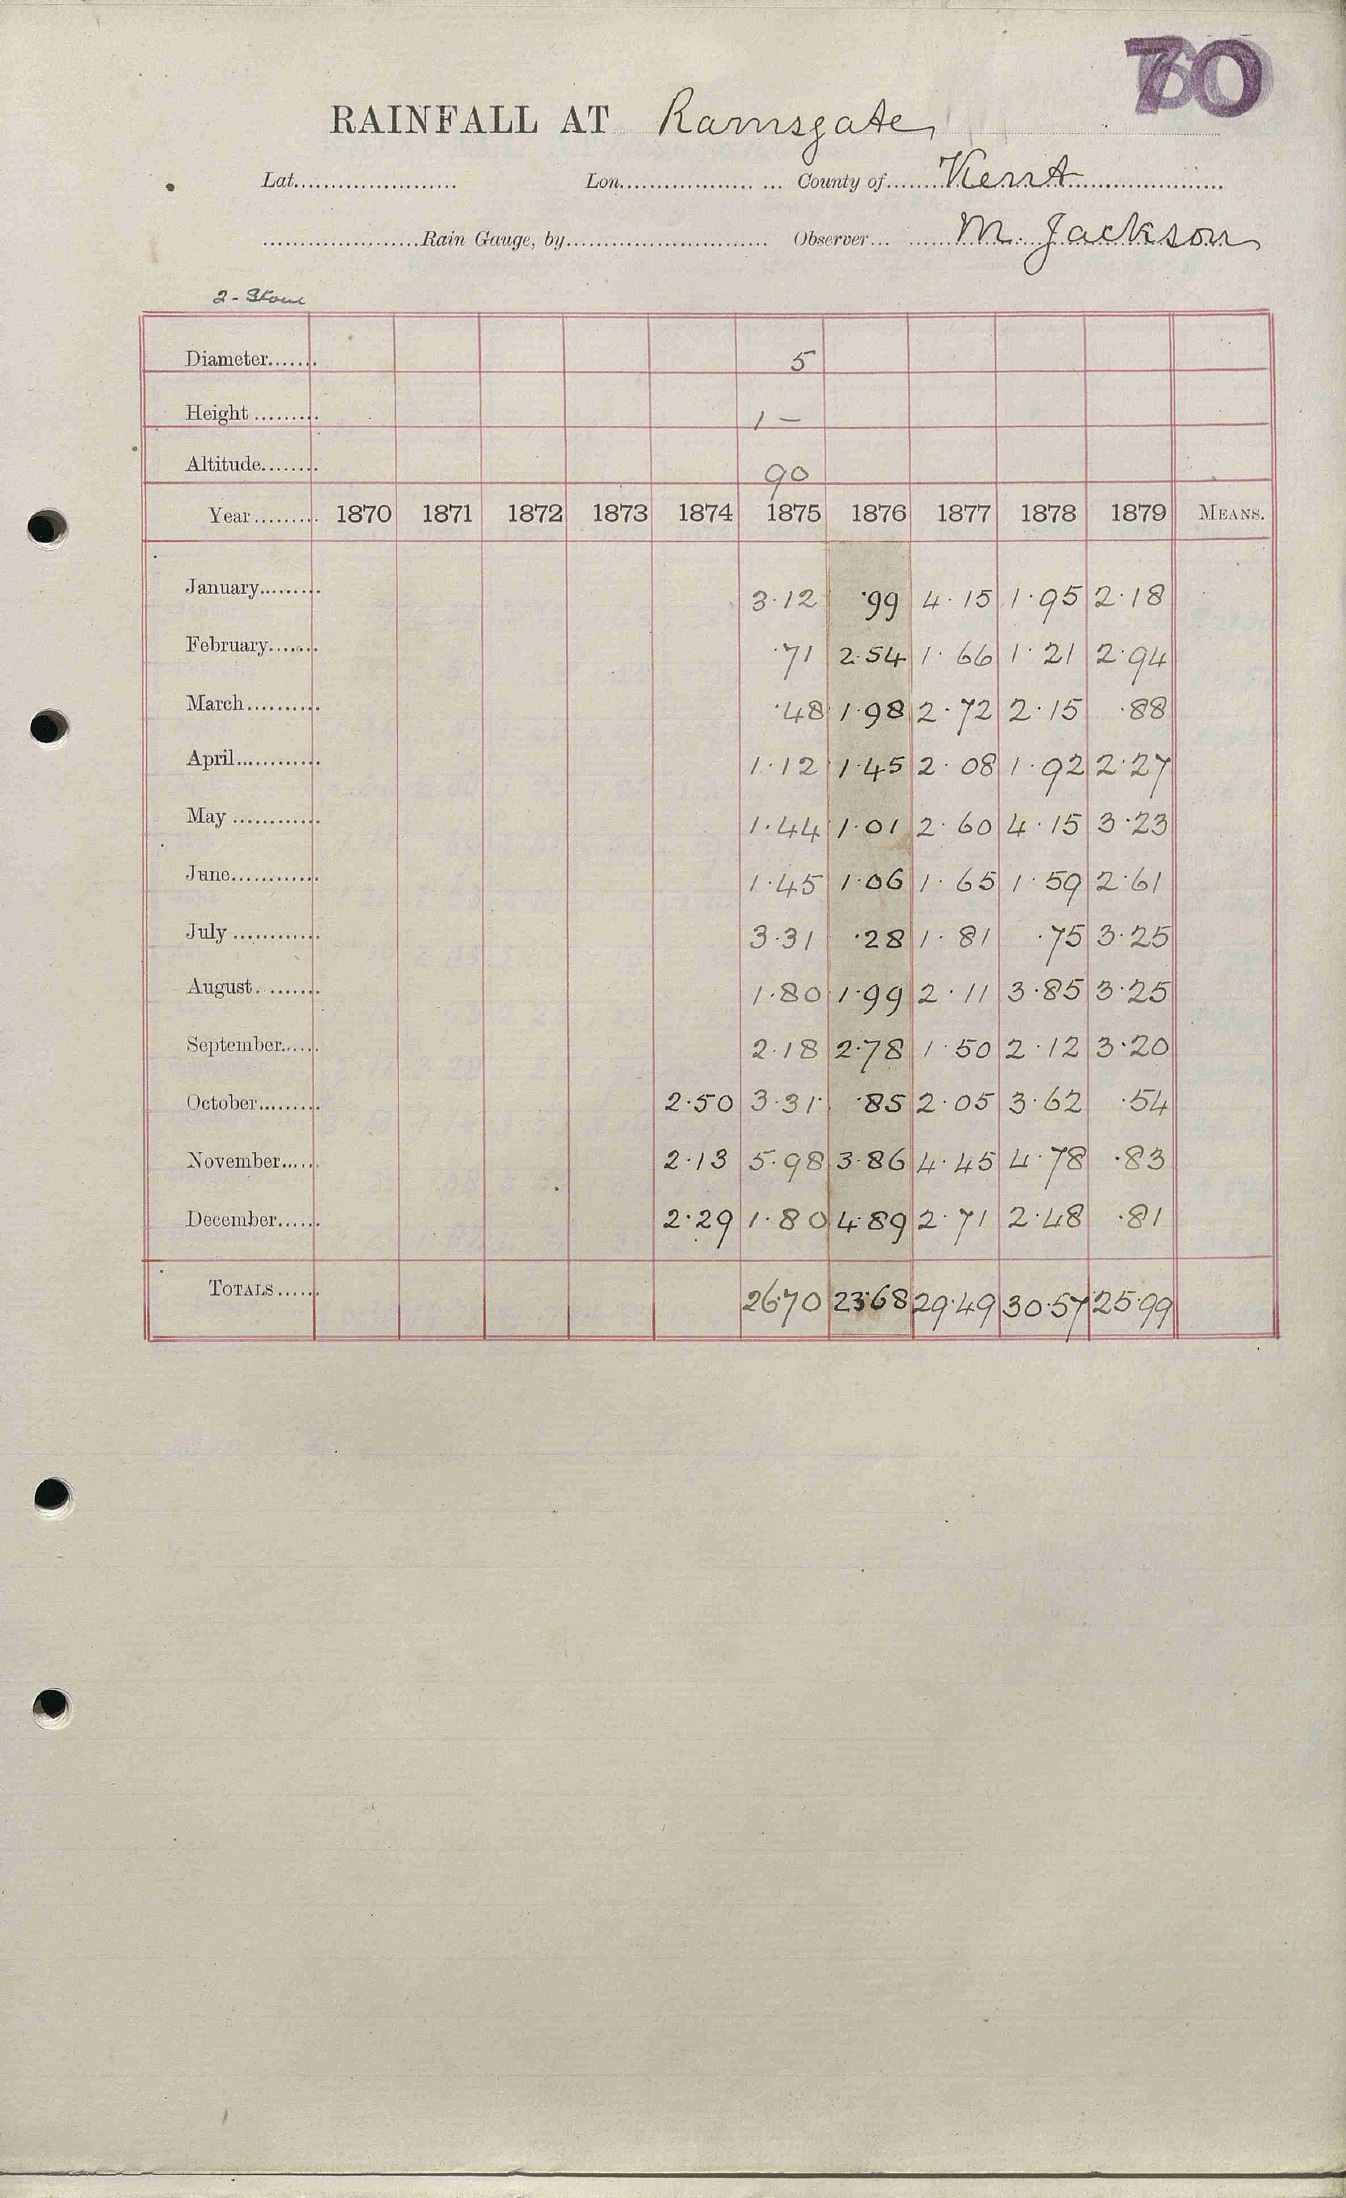 70
RAINFALL AT Ramsgate
Lat. Lon. County of Kent
Rain Gauge, by Observer M. Jackson
2 - Stour
Diameter 5
Height 1 -
Altitude 90
Year 1870 1871 1872 1873 1874 1875 1876 1877 1878 1879 MEANS.
January 3.12 .99 4.15 1.95 2.18
February .71 2.54 1.66 1.21 2.94
March .48 1.98 2.72 2.15 .88
April 1.12 1.45 2.08 1.92 2.27
May 1.44 1.01 2.60 4.15 3.23
June 1.45 1.06 1.65 1.59 2.61
July 3.31 .28 1.81 .75 3.25
August 1.80 1.99 2.11 3.85 3.25
September 2.18 2.78 1.50 2.12 3.20
October 2.50 3.31 .85 2.05 3.62 .54
November 2.13 5.98 3.86 4.45 4.78 .83
December 2.29 1.80 4.89 2.71 2.48 .81
TOTALS 26.70 23.68 29.49 30.57 25.99